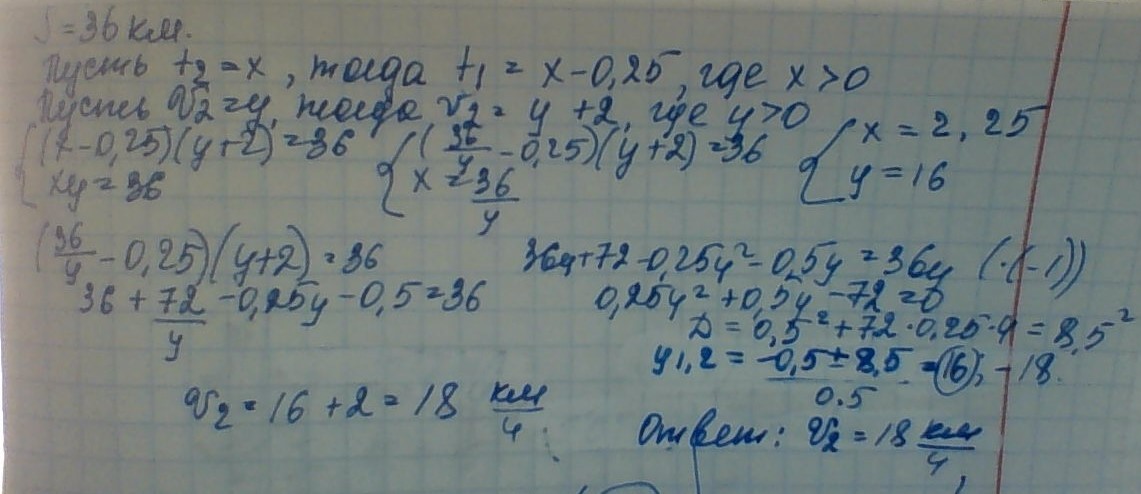 S = 36 км.
Пусть t₂ = x, тогда t₁ = x - 0,25, где x > 0
Пусть v₂ = y, тогда v₂ = y + 2, где y > 0
{ (x - 0,25)(y + 2) = 36 { (36/y - 0,25)(y + 2) = 36 { x = 2,25
xy = 36 x = 36/y y = 16
(36/y - 0,25)(y + 2) = 36 36y + 72 - 0,25y² - 0,5y = 36y (·(-1))
36 + 72/y - 0,25y - 0,5 = 36 0,25y² + 0,5y - 72 = 0
D = 0,5² + 72 · 0,25 · 4 = 8,5²
y1,2 = (-0,5 ± 8,5)/0.5 = 16; -18.
v₂ = 16 + 2 = 18 км/ч
Ответ: v₂ = 18 км/ч